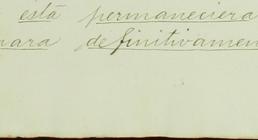 está permaneciera
mara definitivamen